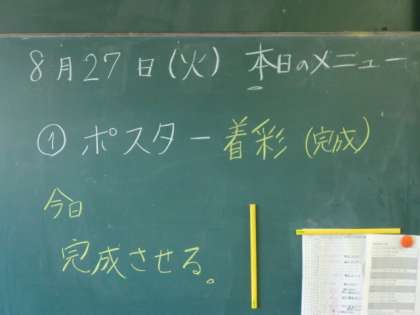 8月27日(火) 本日のメニュー
① ポスター着彩(完成)
今日
完成させる。